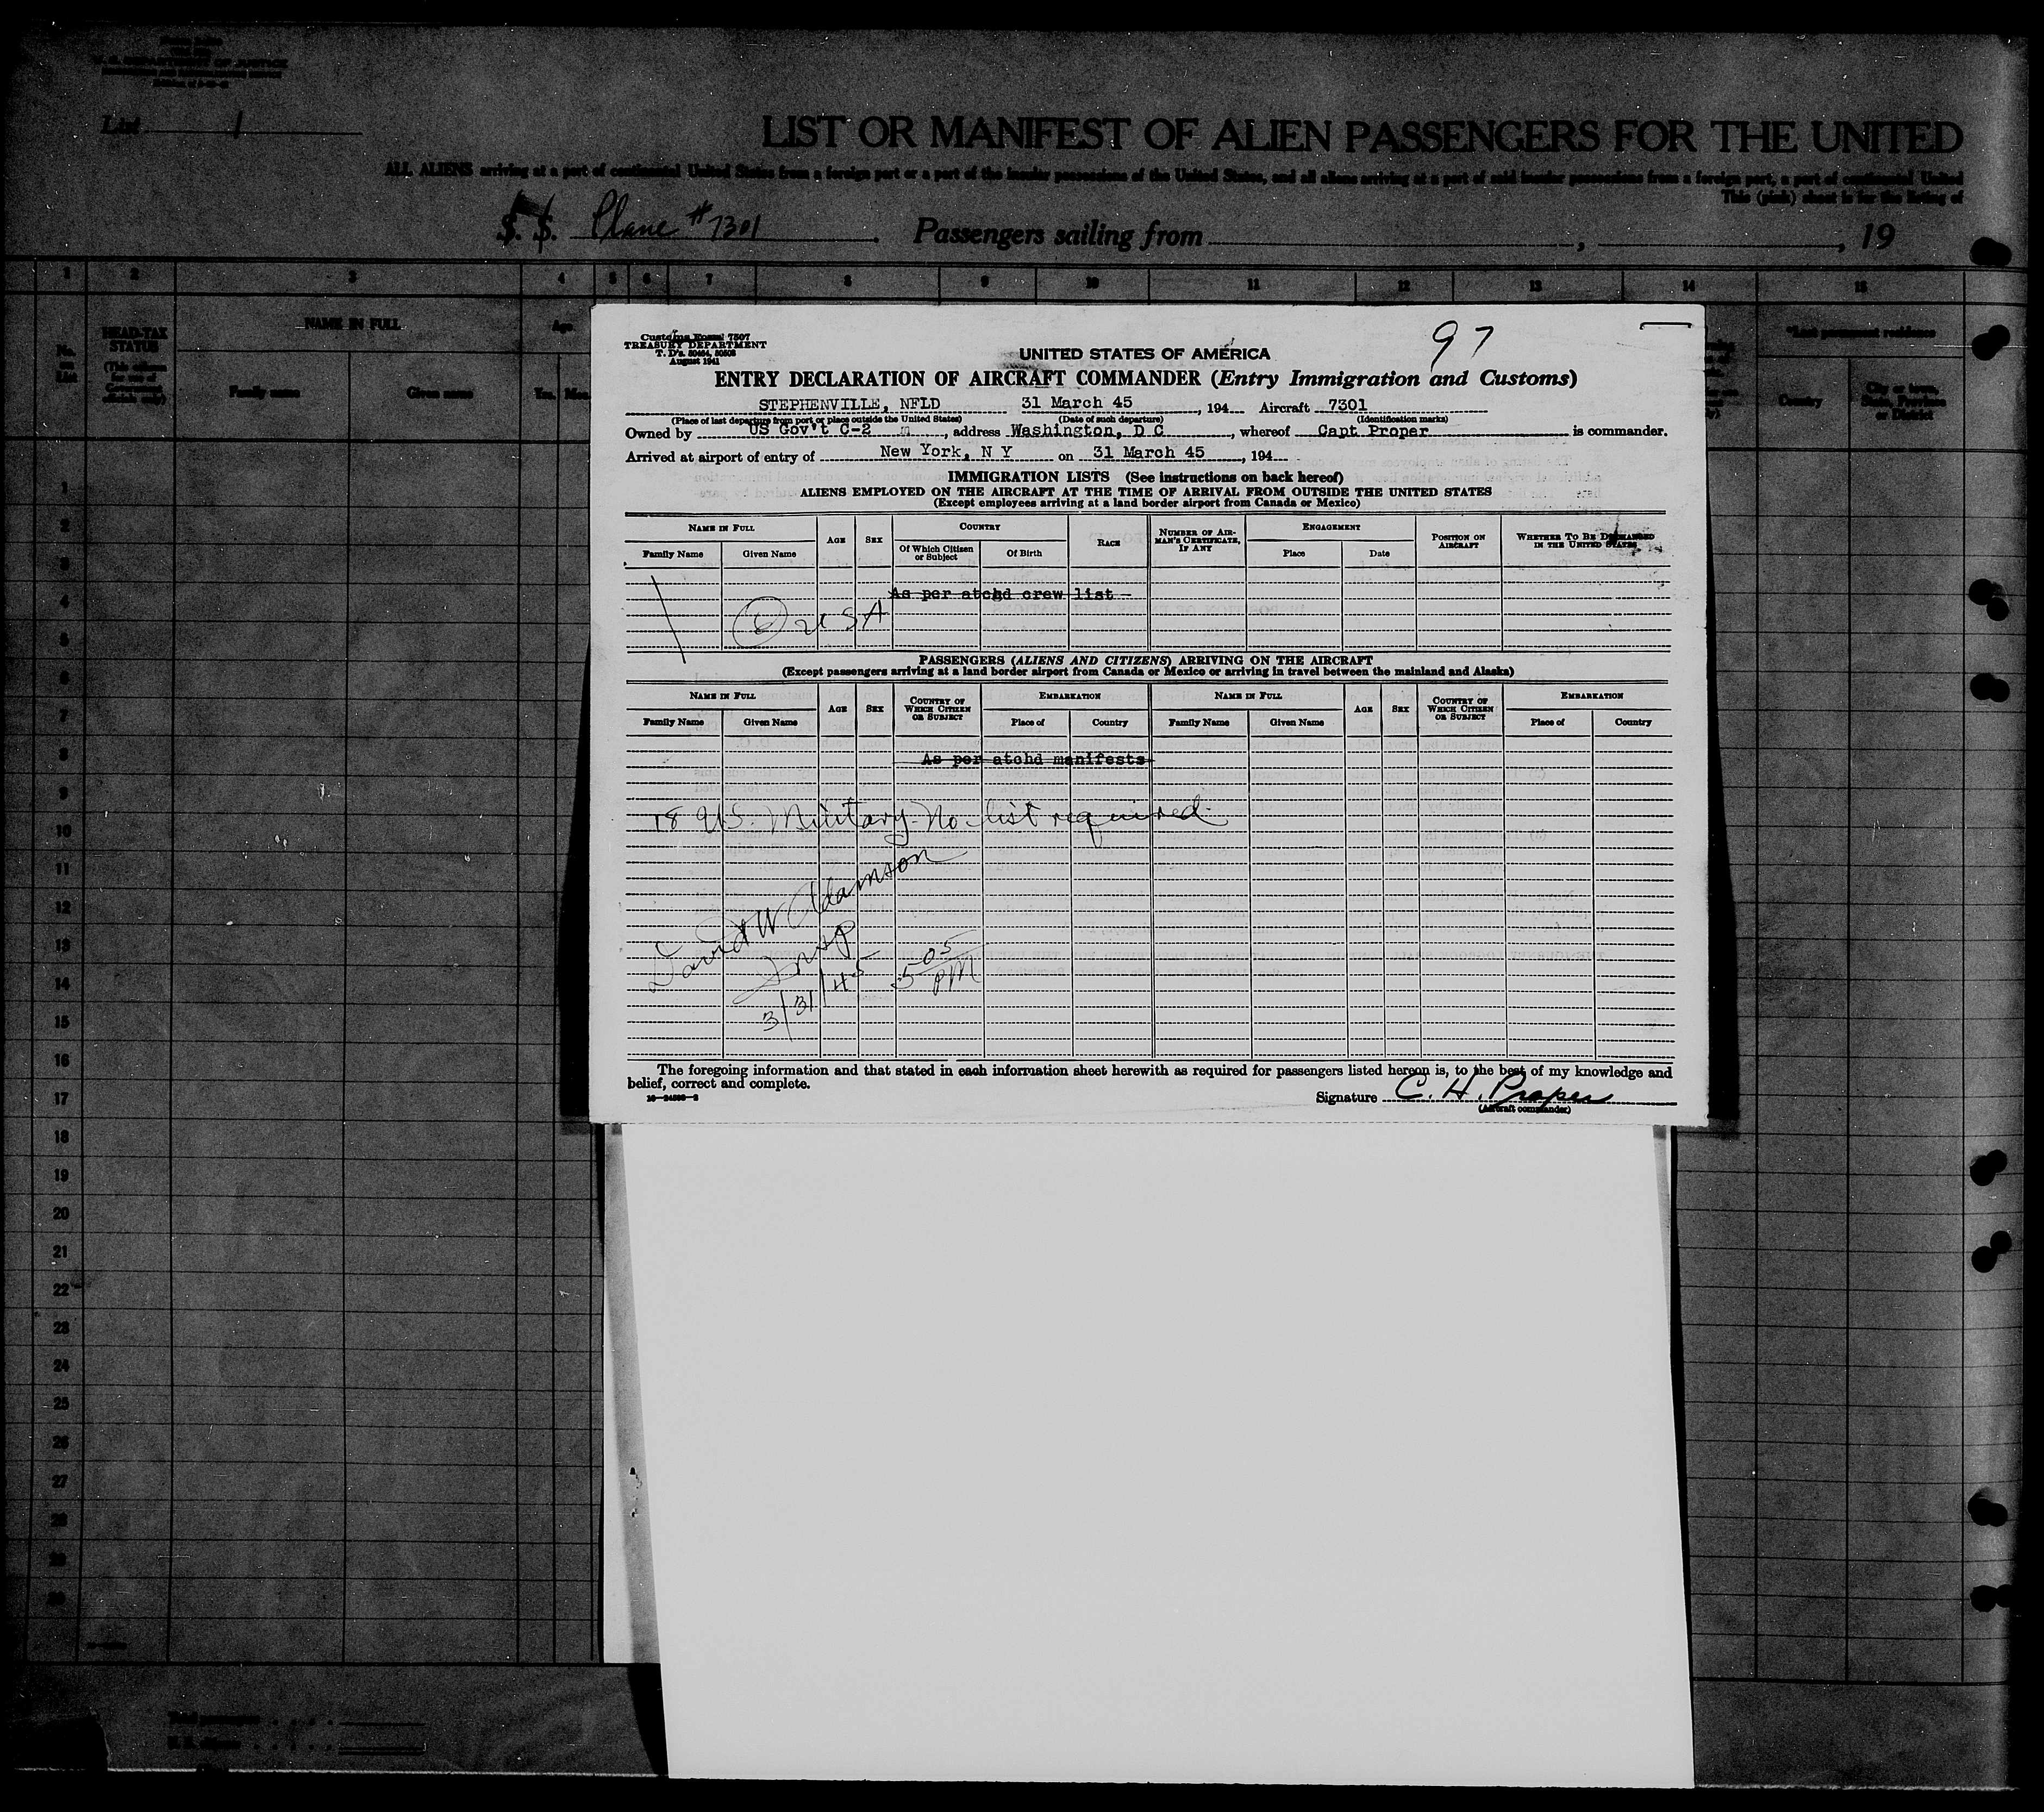 U. S. DEPARTMENT OF JUSTICE
List 1
LIST OR MANIFEST OF ALIEN PASSENGERS FOR THE UNITED
ALL ALIENS arriving at a port of continental United States from a foreign port or a port of the insular possessions of the United States, and all aliens arriving at a port of said insular possessions from a foreign port, a port of continental United
This (pink) sheet is for the listing of
S. S. Plane #7301 Passengers sailing from , , 19
1 2 3 4 5 6 7 8 9 10 11 12 13 14 15
No. on List
HEAD-TAX STATUS
NAME IN FULL
Family name Given name
Age
Yrs. Mos.
*Last permanent residence
Country
City or town, State, Province or District
Customs Form 7507
TREASURY DEPARTMENT
T. D's. 50464, 50503
August 1941
97
UNITED STATES OF AMERICA
ENTRY DECLARATION OF AIRCRAFT COMMANDER (Entry Immigration and Customs)
STEPHENVILLE, NFLD 31 March 45, 194 Aircraft 7301
(Place of last departure from port or place outside the United States) (Date of such departure) (Identification marks)
Owned by US Gov't C-2 m, address Washington, D C, whereof Capt Proper is commander.
Arrived at airport of entry of New York, N Y on 31 March 45, 194
IMMIGRATION LISTS (See instructions on back hereof)
ALIENS EMPLOYED ON THE AIRCRAFT AT THE TIME OF ARRIVAL FROM OUTSIDE THE UNITED STATES
(Except employees arriving at a land border airport from Canada or Mexico)
NAME IN FULL AGE SEX COUNTRY RACE NUMBER OF AIRMAN'S CERTIFICATE, IF ANY ENGAGEMENT POSITION ON AIRCRAFT WHETHER TO BE DISCHARGED IN THE UNITED STATES
Family Name Given Name Of Which Citizen or Subject Of Birth Place Date
As per atchd crew list -
6 USA
PASSENGERS (ALIENS AND CITIZENS) ARRIVING ON THE AIRCRAFT
(Except passengers arriving at a land border airport from Canada or Mexico or arriving in travel between the mainland and Alaska)
NAME IN FULL AGE SEX COUNTRY OF WHICH CITIZEN OR SUBJECT EMBARKATION NAME IN FULL AGE SEX COUNTRY OF WHICH CITIZEN OR SUBJECT EMBARKATION
Family Name Given Name Place of Country Family Name Given Name Place of Country
As per atchd manifests
18 U.S. Military - No list required.
David W Adamson
Insp
3/31/45 5 05 PM
The foregoing information and that stated in each information sheet herewith as required for passengers listed hereon is, to the best of my knowledge and
belief, correct and complete.
Signature C. H. Proper
(Aircraft commander)
1
2
3
4
5
6
7
8
9
10
11
12
13
14
15
16
17
18
19
20
21
22
23
24
25
26
27
28
29
30
Total passengers